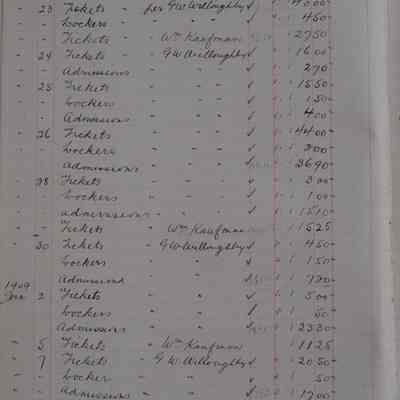 " 23 Tickets " per GW Willoughby √ 4000
" Lockers " " √ 450
" Tickets " Wm Kaufman 2750
" 24 Tickets " GW Willoughby √ 1600
" Admissions " " √ 270
" 25 Tickets " " √ 1550
" Lockers " " √ 150
" Admissions " " √ 400
" 26 Tickets " " √ 4400
" Lockers " " √ 200
Admissions " " 3690
" 28 Tickets " " √ 300
" Lockers " " √ 100
" Admissions " " √ 1510
" Tickets " Wm Kaufman 1525
" 30 Tickets " GW Willoughby √ 450
Lockers " " √ 150
Admissions " 720
1909
Jan 2 Tickets " " √ 500
Lockers " " √ 50
Admissions " " 2330
" 5 Tickets " Wm Kaufman 1125
" 7 Tickets " GW Willoughby √ 2050
" Locker " " √ 50
" Admissions " " 1700